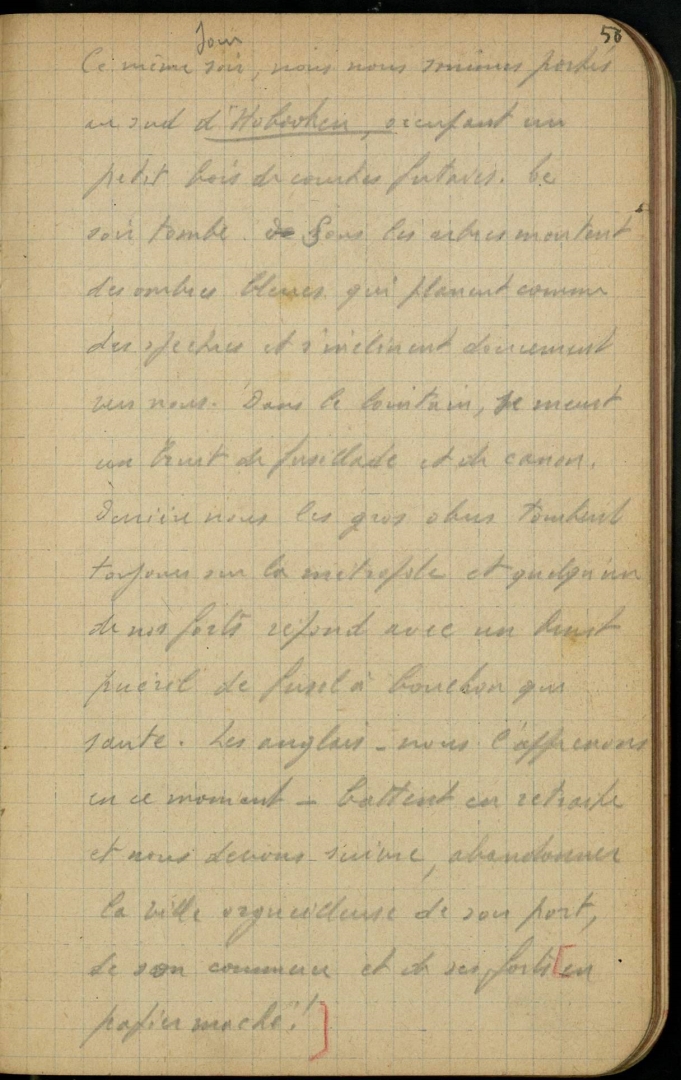 58
Jour
Ce même soir, nous nous sommes portés
au sud d'Hobooken, occupant un
petit bois de courtes futaies. Le
soir tombe. Sous les arbres montent
des ombres bleues qui planent comme
des spectres et s'inclinent doucement
vers nous. Dans le lointain, se meurt
un bruit de fusillade et de canon.
Derrière nous les gros obus tombent
toujours sur la métropole et quelqu'un
de nos forts répond avec un bruit
puéril de fusil à bouchon qui
saute. Les anglais - nous l'apprenons
en ce moment - battent en retraite
et nous devons suivre, abandonner
la ville orgueilleuse de son port,
de son commerce et de ses forts [en
papier maché"!]